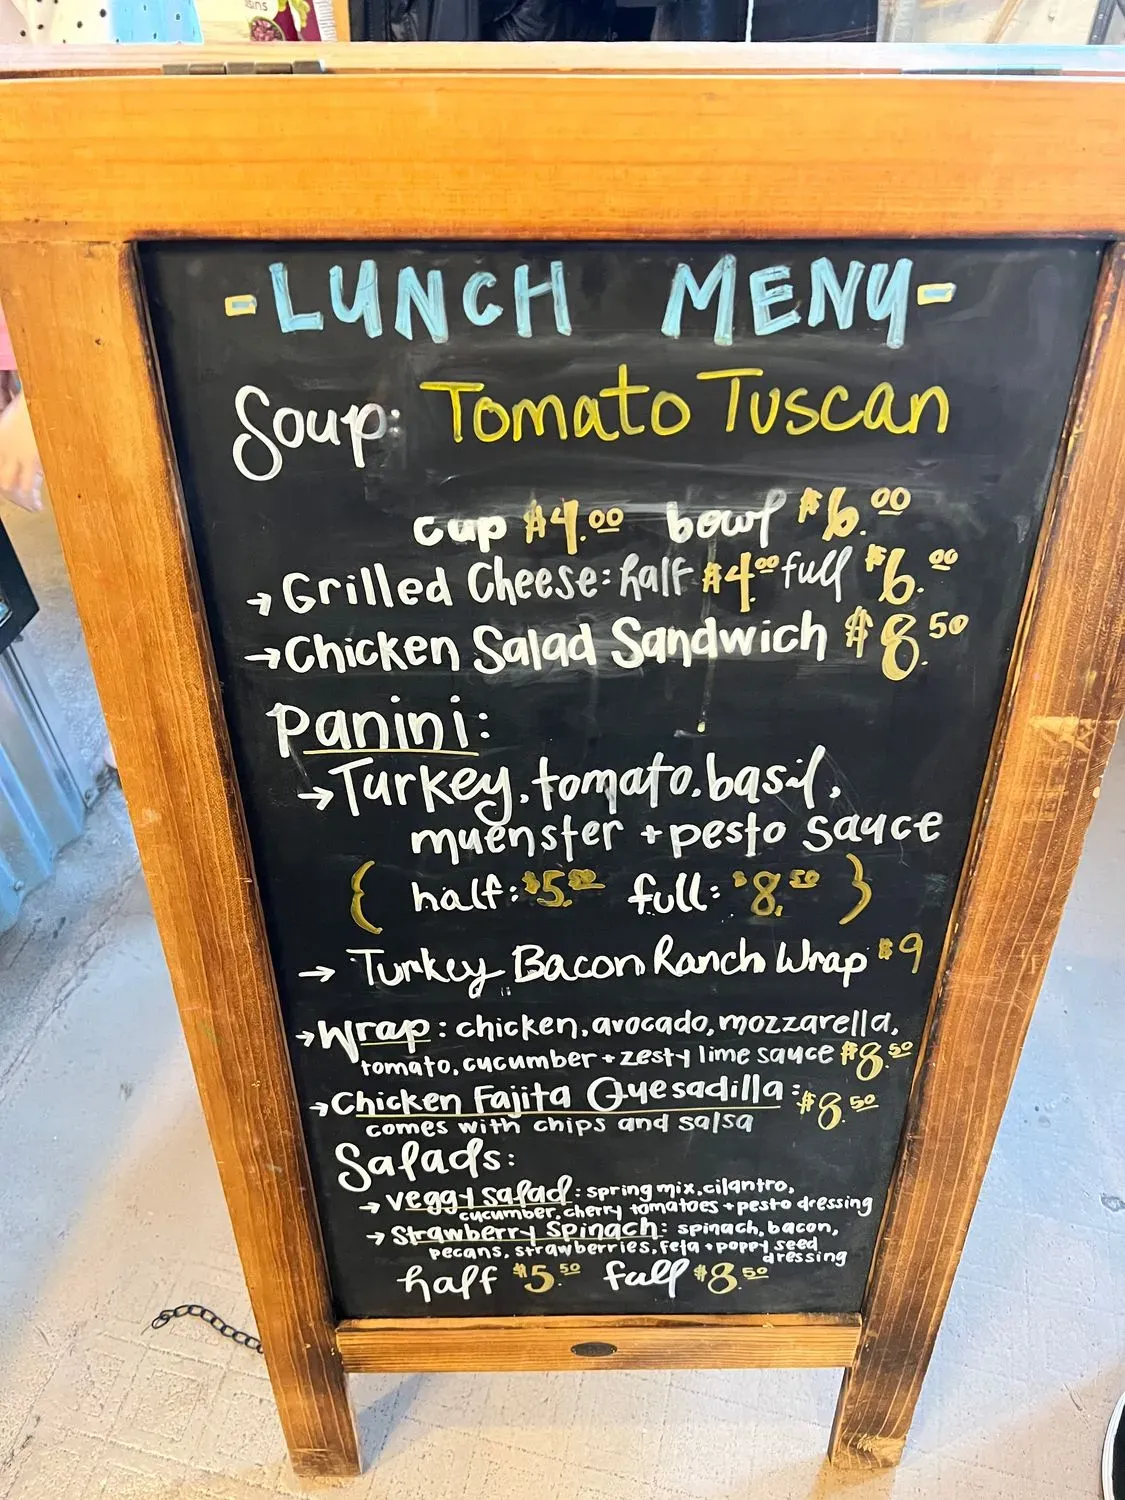 -LUNCH MENU-
Soup: Tomato Tuscan
cup $4.00 bowl $6.00
→Grilled Cheese: half $4.00 full $6.00
→Chicken Salad Sandwich $8.50
Panini:
→Turkey, tomato, basil,
muenster + pesto sauce
{ half: $5.50 full: $8.50 }
→ Turkey Bacon Ranch Wrap $9
→Wrap: chicken, avocado, mozzarella,
tomato, cucumber + zesty lime sauce $8.50
→Chicken Fajita Quesadilla: $8.50
comes with chips and salsa
Salads:
→ veggy salad: spring mix, cilantro,
cucumber, cherry tomatoes + pesto dressing
→ Strawberry Spinach: spinach, bacon,
pecans, strawberries, feta + poppy seed
dressing
half $5.50 full $8.50